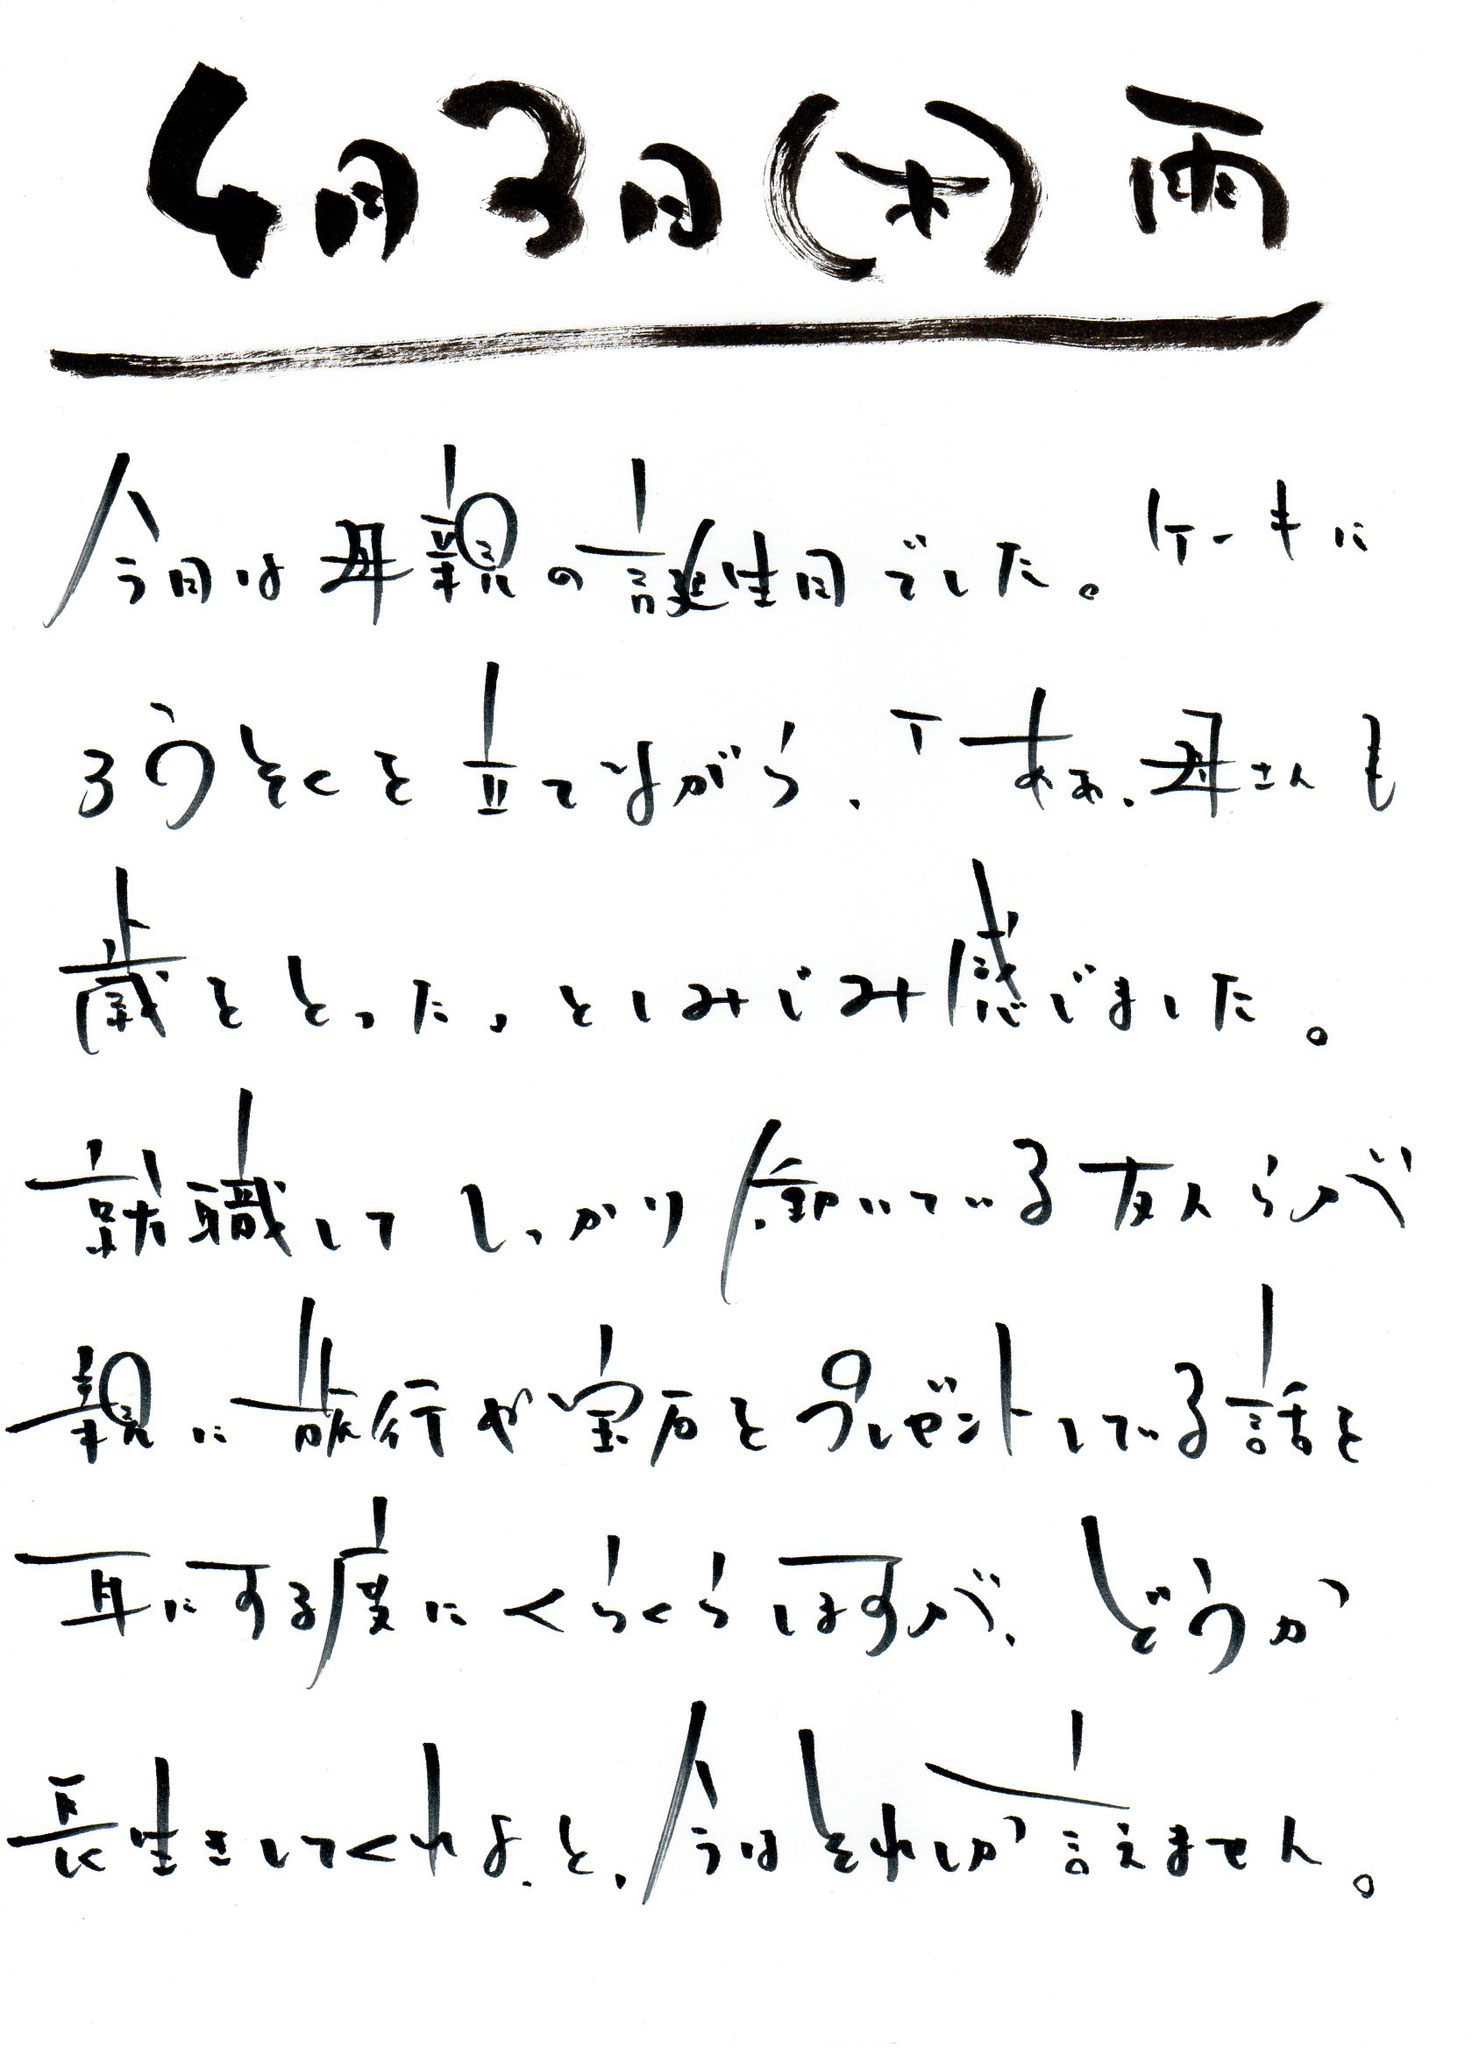 4月3日(木)雨
今日は母親の誕生日でした。ケーキに
ろうそくを立てながら、「ああ、母さんも
歳をとった」としみじみ感じました。
就職してしっかり働いている友人らが
親に旅行や宝石をプレゼントしている話を
耳にする度にくらくらしますが、どうか
長生きしてくれよ、と、今はそれしか言えません。